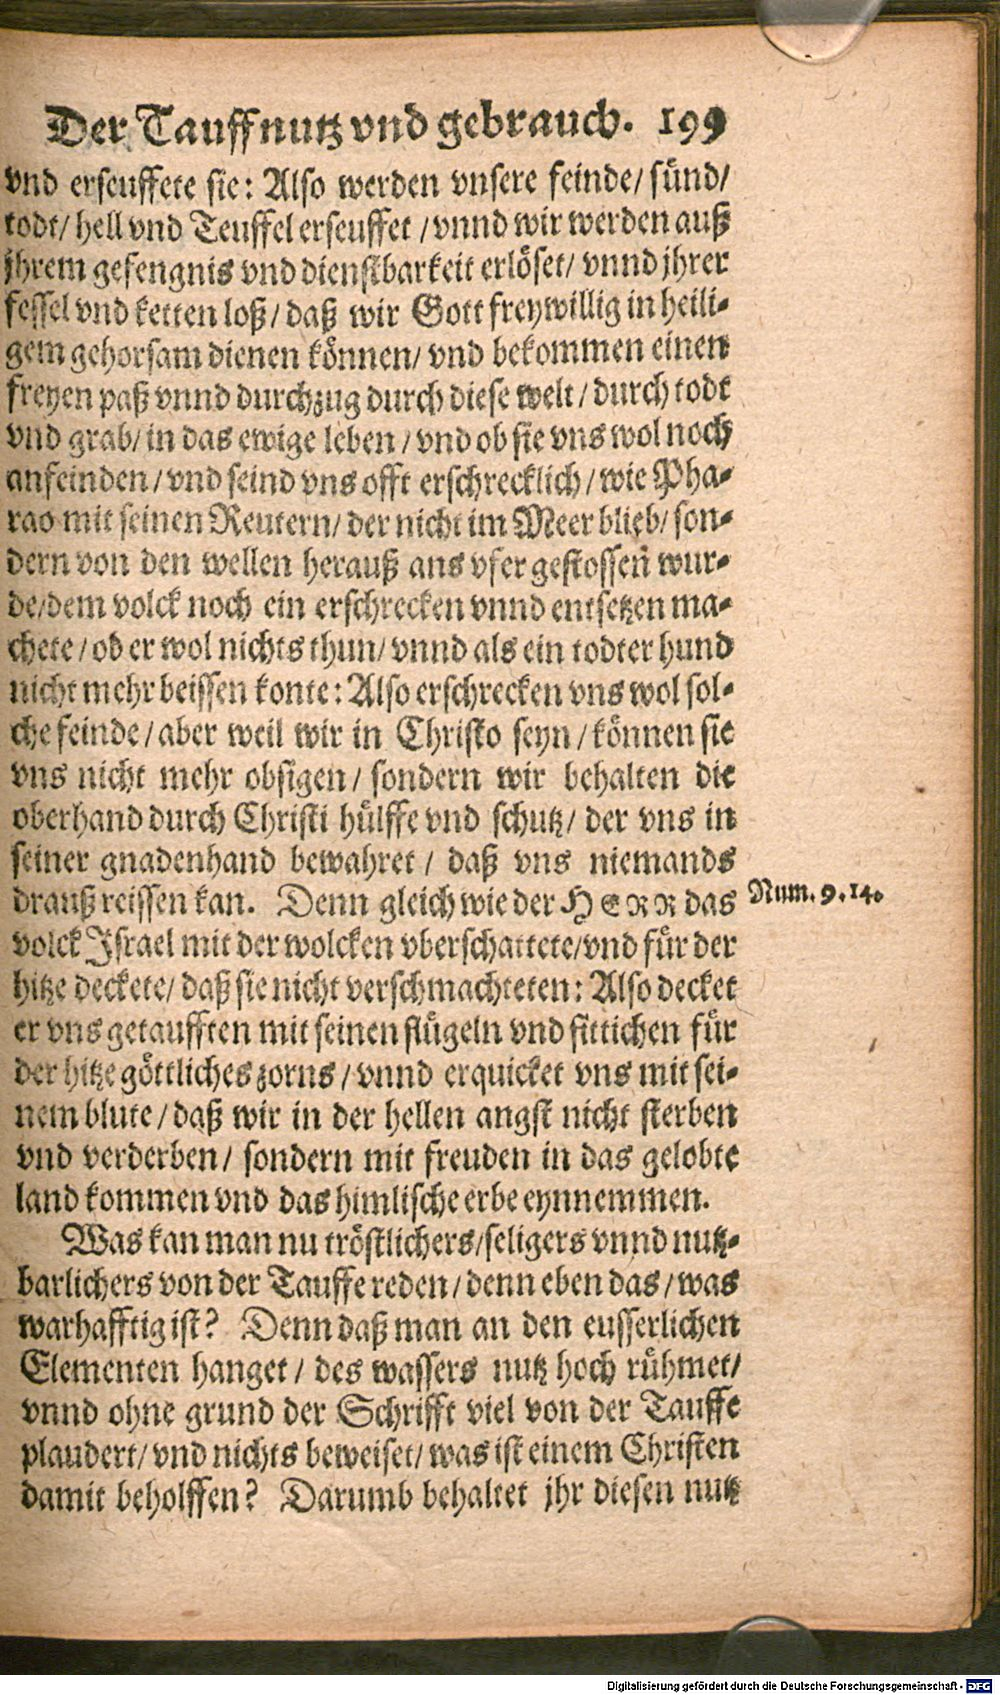 Der Tauff nutz vnd gebrauch. 199
vnd erseuffete sie: Also werden vnsere feinde/ sünd/
todt/ hell vnd Teuffel erseuffet / vnnd wir werden auß
jhrem gefengnis vnd dienstbarkeit erlöset/ vnnd jhrer
fessel vnd ketten loß / daß wir Gott freywillig in heili-
gem gehorsam dienen können/ vnd bekommen einen
freyen paß vnnd durchzug durch diese welt / durch todt
vnd grab/ in das ewige leben / vnd ob sie vns wol noch
anfeinden / vnd seind vns offt erschrecklich / wie Pha-
rao mit seinen Reutern/ der nicht im Meer blieb/ son-
dern von den wellen herauß ans vfer gestossen wur-
de/dem volck noch ein erschrecken vnnd entsetzen ma-
chete / ob er wol nichts thun/ vnnd als ein todter hund
nicht mehr beissen konte: Also erschrecken vns wol sol-
che feinde / aber weil wir in Christo seyn / können sie
vns nicht mehr obsigen / sondern wir behalten die
oberhand durch Christi hülffe vnd schutz/ der vns in
seiner gnadenhand bewahret / daß vns niemands
drauß reissen kan. Denn gleich wie der HERR das
Num. 9. 14.
volck Israel mit der wolcken vberschattete/vnd für der
hitze deckete/ daß sie nicht verschmachteten: Also decket
er vns getaufften mit seinen flügeln vnd fittichen für
der hitze göttliches zorns / vnnd erquicket vns mit sei-
nem blute / daß wir in der hellen angst nicht sterben
vnd verderben / sondern mit freuden in das gelobte
land kommen vnd das himlische erbe eynnemmen.
Was kan man nu tröstlichers/seligers vnnd nutz-
barlichers von der Tauffe reden / denn eben das / was
warhafftig ist? Denn daß man an den eusserlichen
Elementen hanget / des wassers nutz hoch rühmet/
vnnd ohne grund der Schrifft viel von der Tauffe
plaudert/ vnd nichts beweiset/ was ist einem Christen
damit beholffen? Darumb behaltet jhr diesen nutz
Digitalisierung gefördert durch die Deutsche Forschungsgemeinschaft - DFG